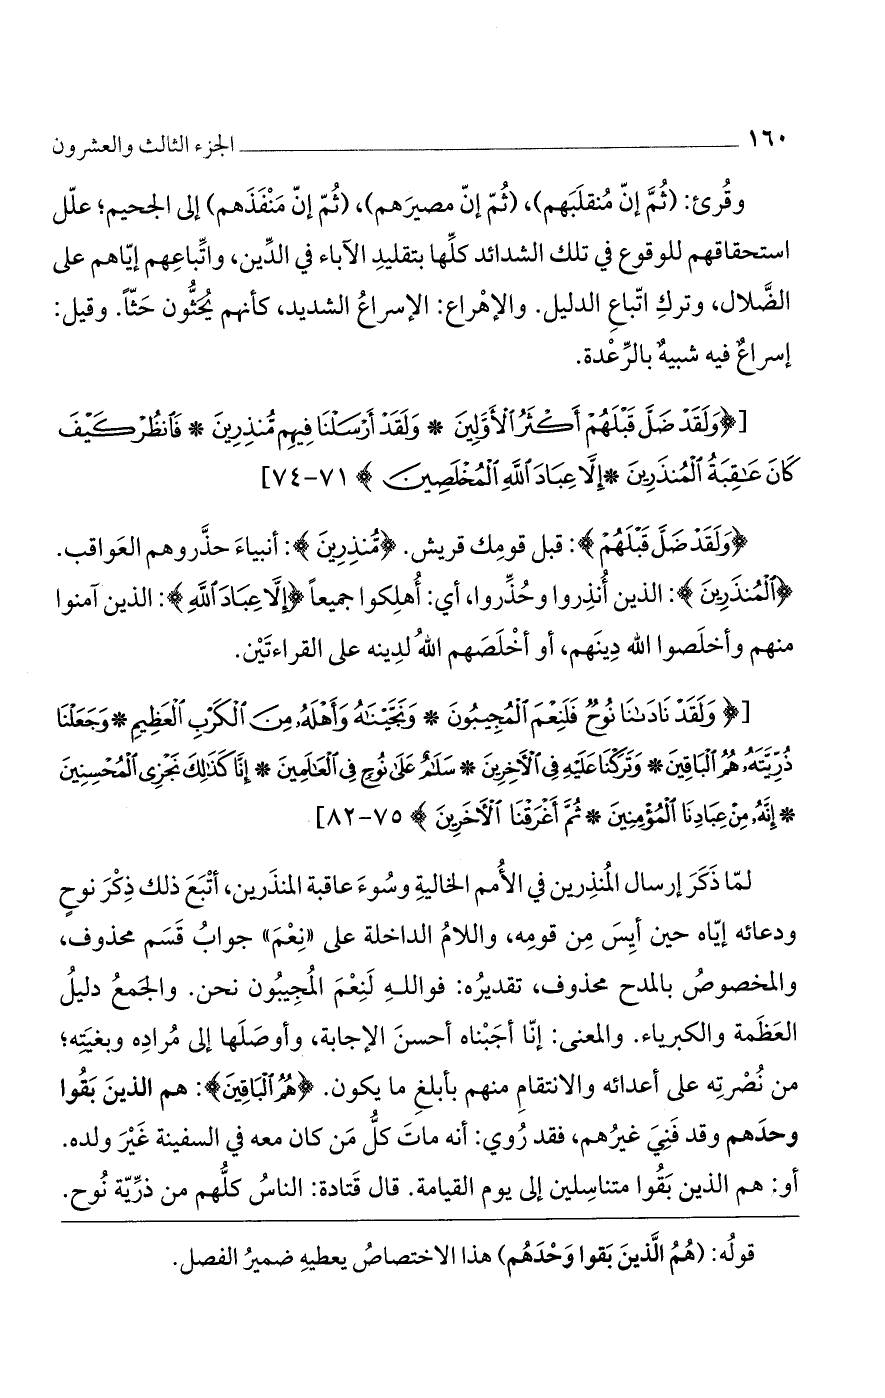 ١٦٠ ــــــــــــــــــــ الجزء الثالث والعشرون
وقُرئ: (ثُمَّ إنّ مُنقلَبَهم)، (ثُمّ إنّ مصيرَهم)، (ثُمّ إنّ مَنْفَذَهم) إلى الجحيم؛ علّل
استحقاقهم للوقوع في تلك الشدائد كلِّها بتقليدِ الآباء في الدِّين، واتِّباعِهم إيّاهم على
الضَّلال، وتركِ اتّباعِ الدليل. والإهْراع: الإسراعُ الشديد، كأنهم يُحَثُّون حَثّاً. وقيل:
إسراعٌ فيه شبيهٌ بالرِّعْدة.
[﴿وَلَقَدْ ضَلَّ قَبْلَهُمْ أَكْثَرُ ٱلْأَوَّلِينَ * وَلَقَدْ أَرْسَلْنَا فِيهِم مُّنذِرِينَ * فَٱنظُرْ كَيْفَ
كَانَ عَـٰقِبَةُ ٱلْمُنذَرِينَ * إِلَّا عِبَادَ ٱللَّهِ ٱلْمُخْلَصِينَ ﴾ ٧١-٧٤]
﴿وَلَقَدْ ضَلَّ قَبْلَهُمْ﴾: قبل قومِك قريش. ﴿مُّنذِرِينَ ﴾: أنبياءَ حذَّروهم العَواقب.
﴿ٱلْمُنذَرِينَ ﴾: الذين أُنذِروا وحُذِّروا، أي: أُهلِكوا جميعاً ﴿إِلَّا عِبَادَ ٱللَّهِ﴾: الذين آمنوا
منهم وأخلَصوا الله دِينَهم، أو أخْلَصَهم اللهُ لدِينه على القراءتَيْن.
[﴿ وَلَقَدْ نَادَىٰنَا نُوحٌ فَلَنِعْمَ ٱلْمُجِيبُونَ * وَنَجَّيْنَـٰهُ وَأَهْلَهُۥ مِنَ ٱلْكَرْبِ ٱلْعَظِيمِ * وَجَعَلْنَا
ذُرِّيَّتَهُۥ هُمُ ٱلْبَاقِينَ * وَتَرَكْنَا عَلَيْهِ فِى ٱلْآخِرِينَ * سَلَـٰمٌ عَلَىٰ نُوحٍ فِى ٱلْعَـٰلَمِينَ * إِنَّا كَذَٰلِكَ نَجْزِى ٱلْمُحْسِنِينَ
* إِنَّهُۥ مِنْ عِبَادِنَا ٱلْمُؤْمِنِينَ * ثُمَّ أَغْرَقْنَا ٱلْآخَرِينَ ﴾ ٧٥-٨٢]
لمّا ذَكَرَ إرسال المُنذِرين في الأُمم الخاليةِ وسُوءَ عاقبة المنذَرين، أتْبَعَ ذلك ذِكْرَ نوحٍ
ودعائه إيّاه حين أيِسَ مِن قومِه، واللامُ الداخلة على «نِعْمَ» جوابُ قَسَم محذوف،
والمخصوصُ بالمدح محذوف، تقديرُه: فواللهِ لَنِعْمَ المُجِيبُون نحن. والجَمعُ دليلُ
العَظَمة والكبرياء. والمعنى: إنّا أجَبْناه أحسنَ الإجابة، وأوصَلَها إلى مُرادِه وبغيَتِه؛
من نُصْرتِه على أعدائه والانتقامِ منهم بأبلغِ ما يكون. ﴿هُمُ ٱلْبَاقِينَ﴾: هم الذينَ بَقُوا
وحدَهم وقد فَنِيَ غيرُهم، فقد رُوي: أنه ماتَ كلُّ مَن كان معه في السفينة غَيْرَ ولده.
أو: هم الذين بَقُوا متناسِلين إلى يوم القيامة. قال قَتادة: الناسُ كلُّهم من ذرِّيّة نُوح.
قولُه: (هُمُ الَّذينَ بَقوا وَحْدَهُم) هذا الاختصاصُ يعطيهِ ضميرُ الفصل.